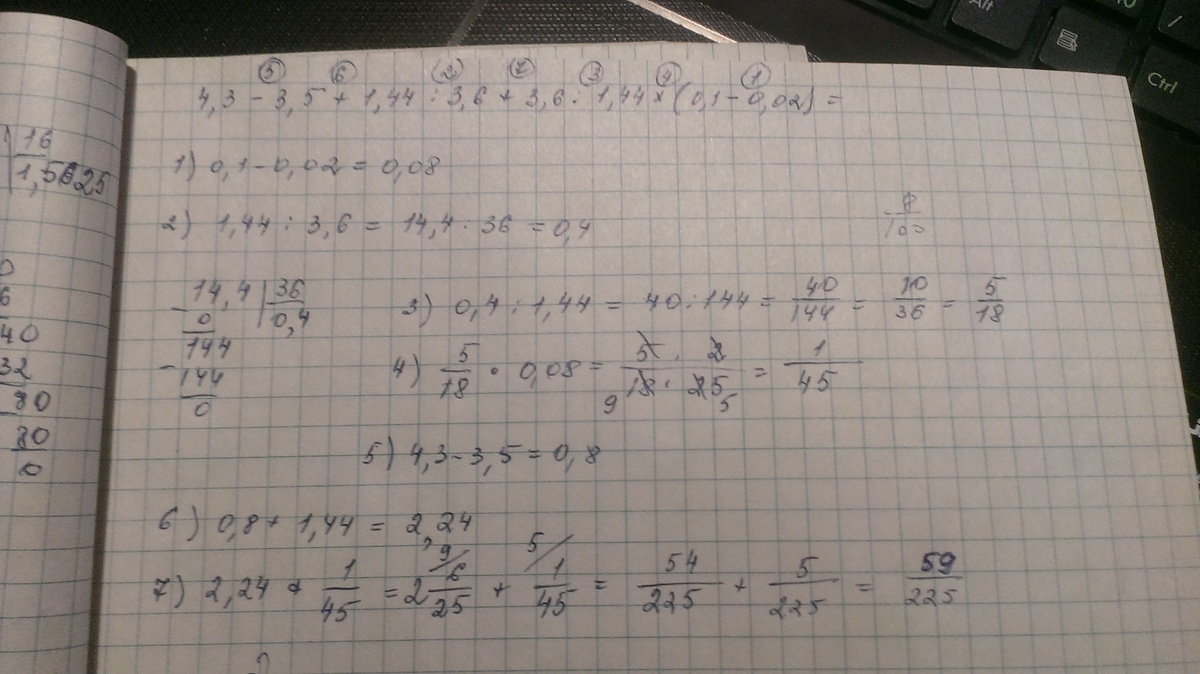 5 6 2 7 3 4 1
4,3 - 3,5 + 1,44 : 3,6 + 3,6 : 1,44 × (0,1 - 0,02) =
16
1,5625
1) 0,1 - 0,02 = 0,08
2) 1,44 : 3,6 = 14,4 : 36 = 0,4
8/100
14,4 | 36
0 0,4
144
144
0
3) 0,4 : 1,44 = 40 : 144 = 40/144 = 10/36 = 5/18
4) 5/18 • 0,08 = 5 · 2 / 18 · 25 = 1/45
9 5
5) 4,3 - 3,5 = 0,8
6) 0,8 + 1,44 = 2,24
7) 2,24 + 1/45 = 2 6/25 + 1/45 = 54/225 + 5/225 = 59/225
9 5
0
6
40
32
80
80
0